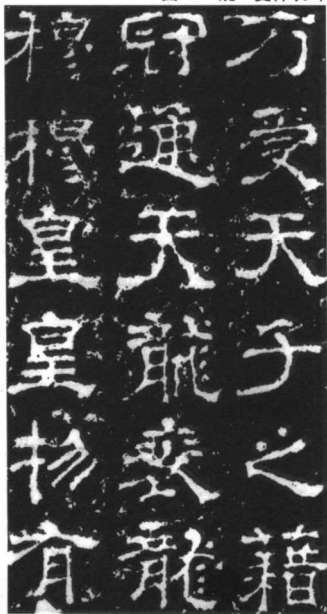 方受天子之籍
冠通天龍袞龍
穆穆皇皇物有